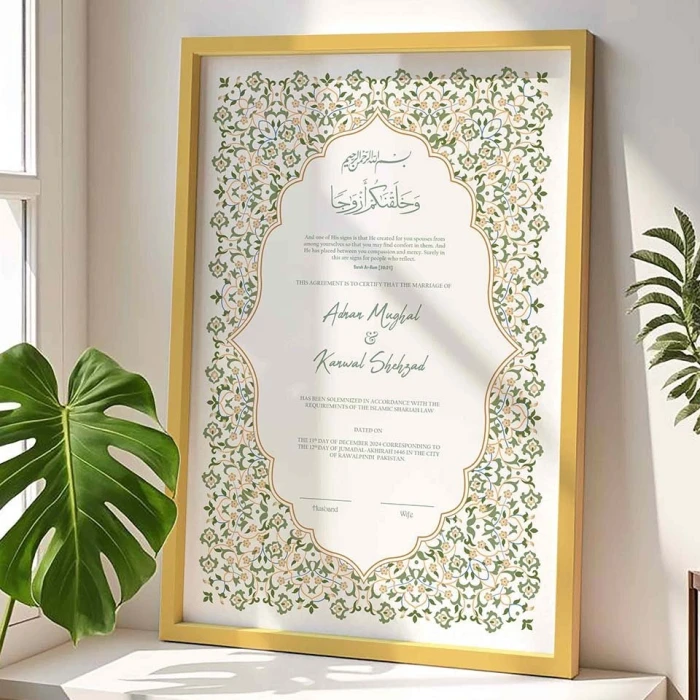 بسم الله الرحمن الرحيم
وَخَلَقْنَاكُمْ أَزْوَاجًا
And one of His signs is that He created for you spouses from
among yourselves so that you may find comfort in them. And
He has placed between you compassion and mercy. Surely in
this are signs for people who reflect.
Surah Ar-Rum [30:21]
THIS AGREEMENT IS TO CERTIFY THAT THE MARRIAGE OF
Adnan Mughal
&
Kanwal Shehzad
HAS BEEN SOLEMNIZED IN ACCORDANCE WITH THE
REQUIREMENTS OF THE ISLAMIC SHARIAH LAW
DATED ON
THE 13th DAY OF DECEMBER 2024 CORRESPONDING TO
THE 12th DAY OF JUMADAL-AKHIRAH 1446 IN THE CITY
OF RAWALPINDI PAKISTAN.
Husband
Wife